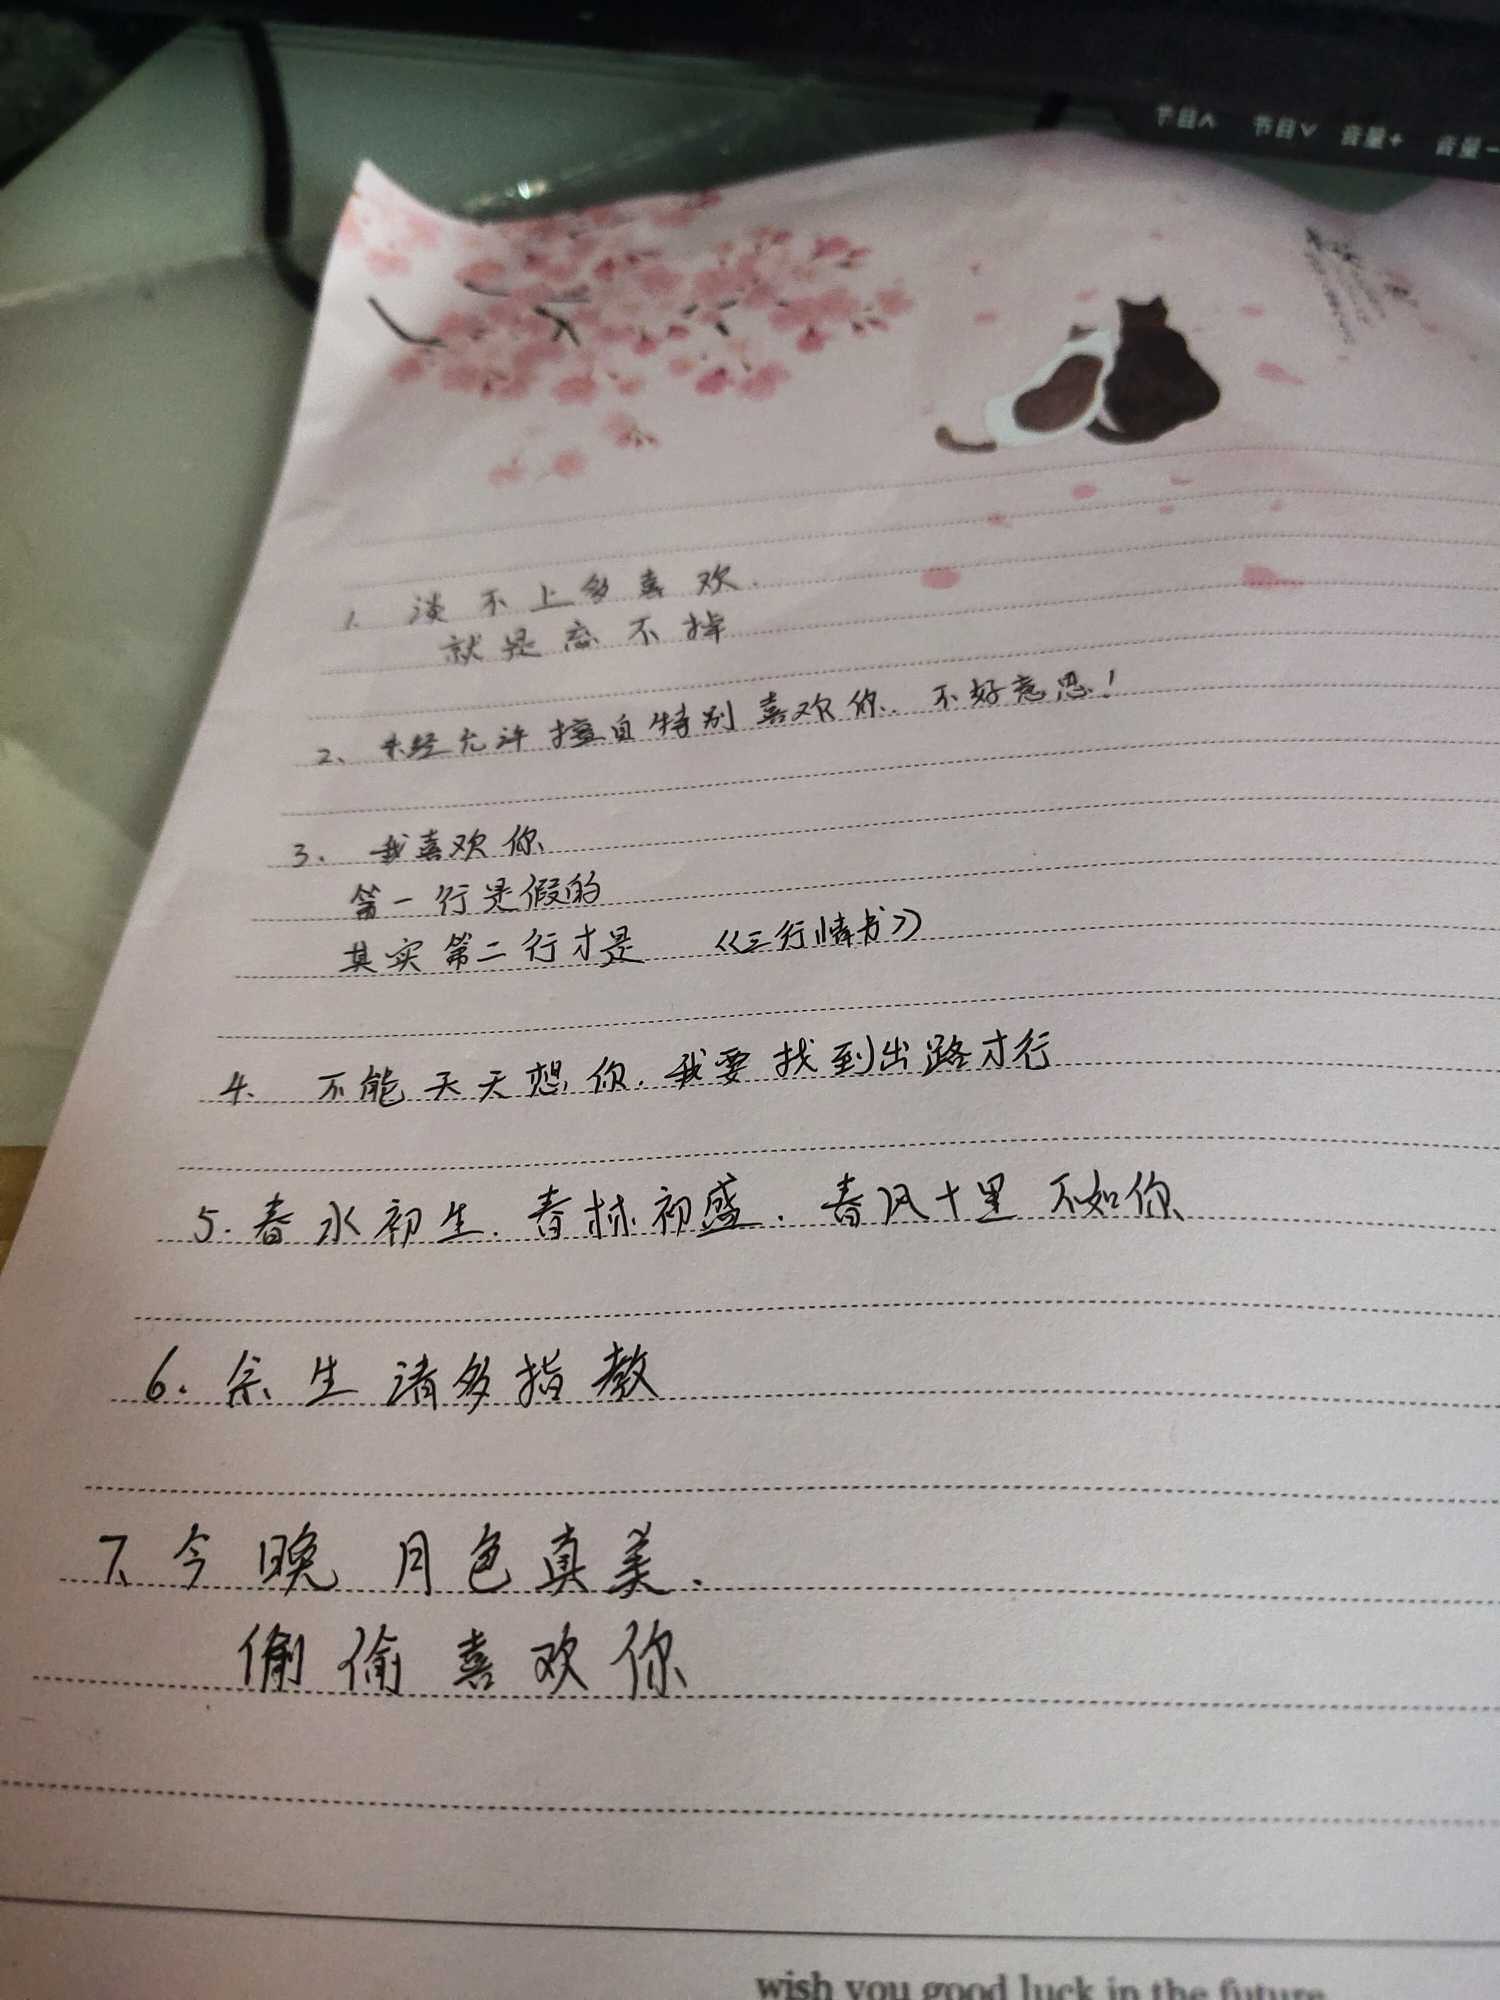 节目∧ 节目∨ 音量+ 音量-
1. 淡不上多喜欢.
就是忘不掉
2、未经允许擅自特别喜欢你.不好意思!
3. 我喜欢你
第一行是假的
其实第二行才是 《三行情书》
4. 不能天天想你.我要找到出路才行
5.春水初生.春林初盛.春风十里不如你
6.余生请多指教
7、今晚月色真美.
偷偷喜欢你
wish you good luck in the future